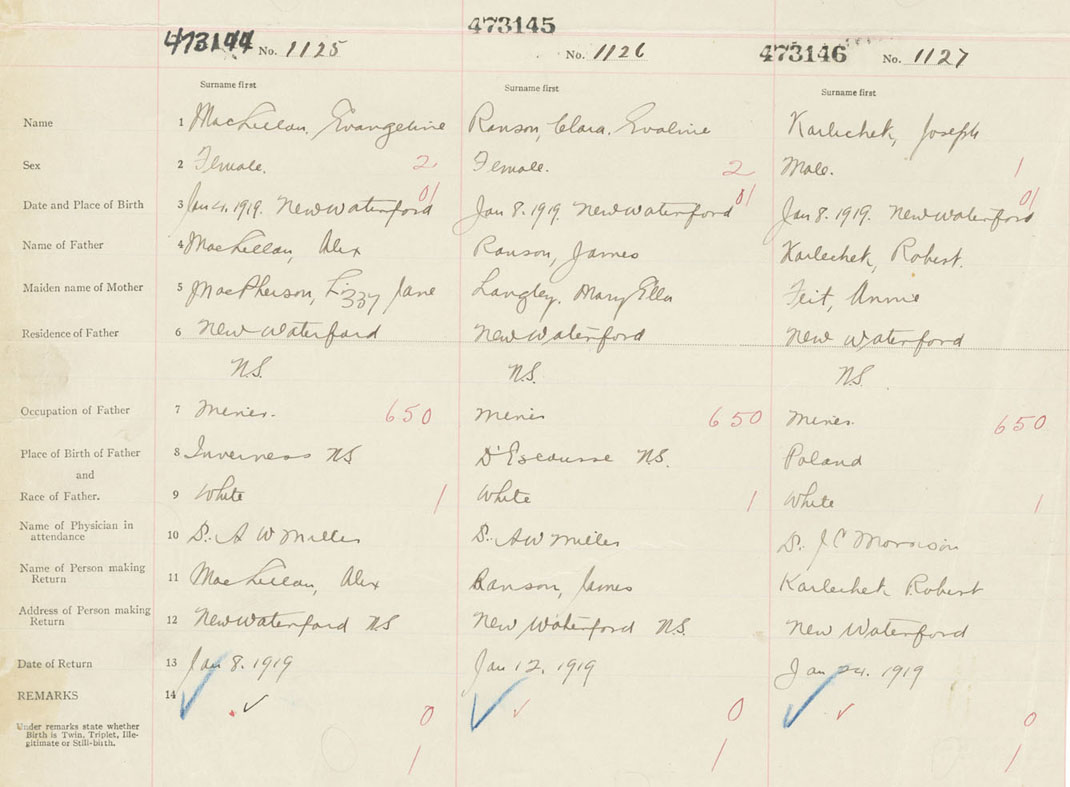 473144 No. 1125
473145
No. 1126
473146 No. 1127
Surname first
Surname first
Surname first
Name 1 MacLellan, Evangeline Ranson, Clara. Evaline Karlechek, Joseph
Sex 2 Female. 2 Female. 2 Male. 1
Date and Place of Birth 3 Jan 4. 1919. New Waterford 01 Jan 8. 1919. New Waterford 01 Jan 8. 1919. New Waterford 01
Name of Father 4 MacLellan, Alex Ranson, James Karlechek, Robert.
Maiden name of Mother 5 MacPherson, Lizzy Jane Langley, Mary Ella Feit, Annie
Residence of Father 6 New Waterford New Waterford New Waterford
N.S. N.S. N.S.
Occupation of Father 7 Miner. 650 Miner 650 Miner. 650
Place of Birth of Father 8 Inverness NS D'Escousse N.S. Poland
and
Race of Father. 9 White 1 White 1 White 1
Name of Physician in
attendance 10 Dr. A W Miller Dr. AW Miller Dr. J C Morrison
Name of Person making
Return 11 MacLellan, Alex Ranson, James Karlechek Robert
Address of Person making
Return 12 New Waterford NS New Waterford N.S. New Waterford
Date of Return 13 Jan 8. 1919 Jan 12, 1919 Jan 24. 1919
REMARKS 14
0 0 0
Under remarks state whether
Birth is Twin, Triplet, Ille-
gitimate or Still-birth.
1 1 1